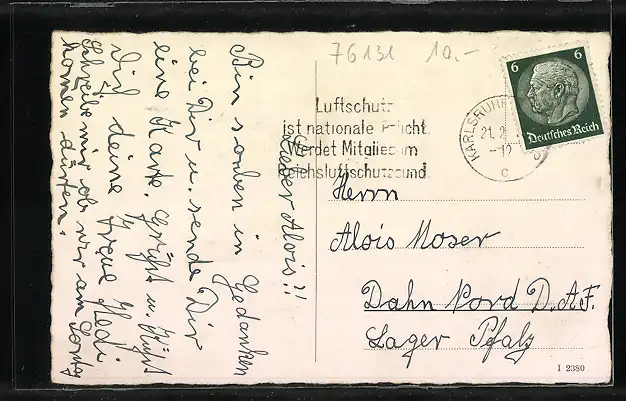 76131 10.-
Luftschutz
ist nationale Pflicht.
Werdet Mitglied im
Reichsluftschutzbund.
KARLSRUHE
21.2
-12
c
6 6
Deutsches Reich
Herrn
Alois Moser
Dahn Nord D.A.F.
Lager Pfalz
I 2380
Lieber Alois!!
Bin soeben in Gedanken
bei Dir u. sende Dir
eine Karte. Grüßt u. Küßt
Dich deine treue Hedi
Schreibe mir ob wir am Sontag
komen dürfen.